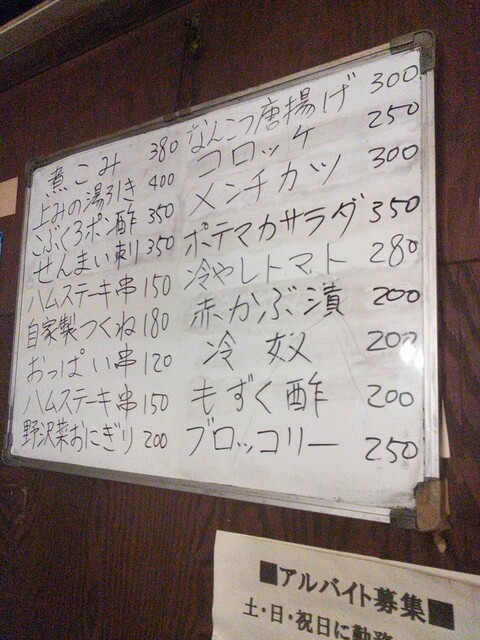 煮こみ 380
上みの湯引き 400
こぶくろポン酢 350
せんまい刺 350
ハムステーキ串 150
自家製つくね 180
おっぱい串 120
ハムステーキ串 150
野沢菜おにぎり 200
なんこつ唐揚げ 300
コロッケ 250
メンチカツ 300
ポテマカサラダ 350
冷やしトマト 280
赤かぶ漬 200
冷奴 200
もずく酢 200
ブロッコリー 250
■アルバイト募集■
土・日・祝日に勤務